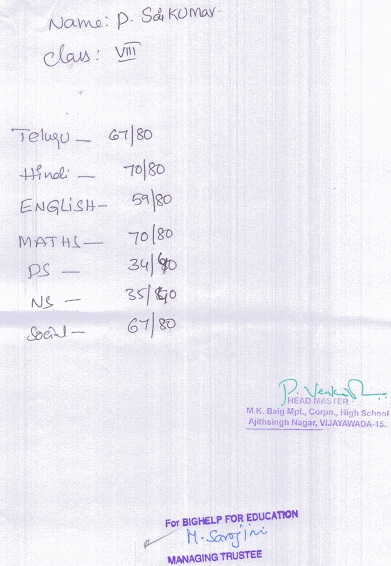 Name: P. Saikumar.
Class: VIII
Telugu — 67/80
Hindi — 70/80
ENGLISH — 59/80
MATHS — 70/80
PS — 34/40
NS — 35/40
Social — 67/80
P. Venka
HEAD MASTER
M.K. Baig Mpl., Corpn., High School
Ajithsingh Nagar, VIJAYAWADA-15.
For BIGHELP FOR EDUCATION
M. Sarojini
MANAGING TRUSTEE